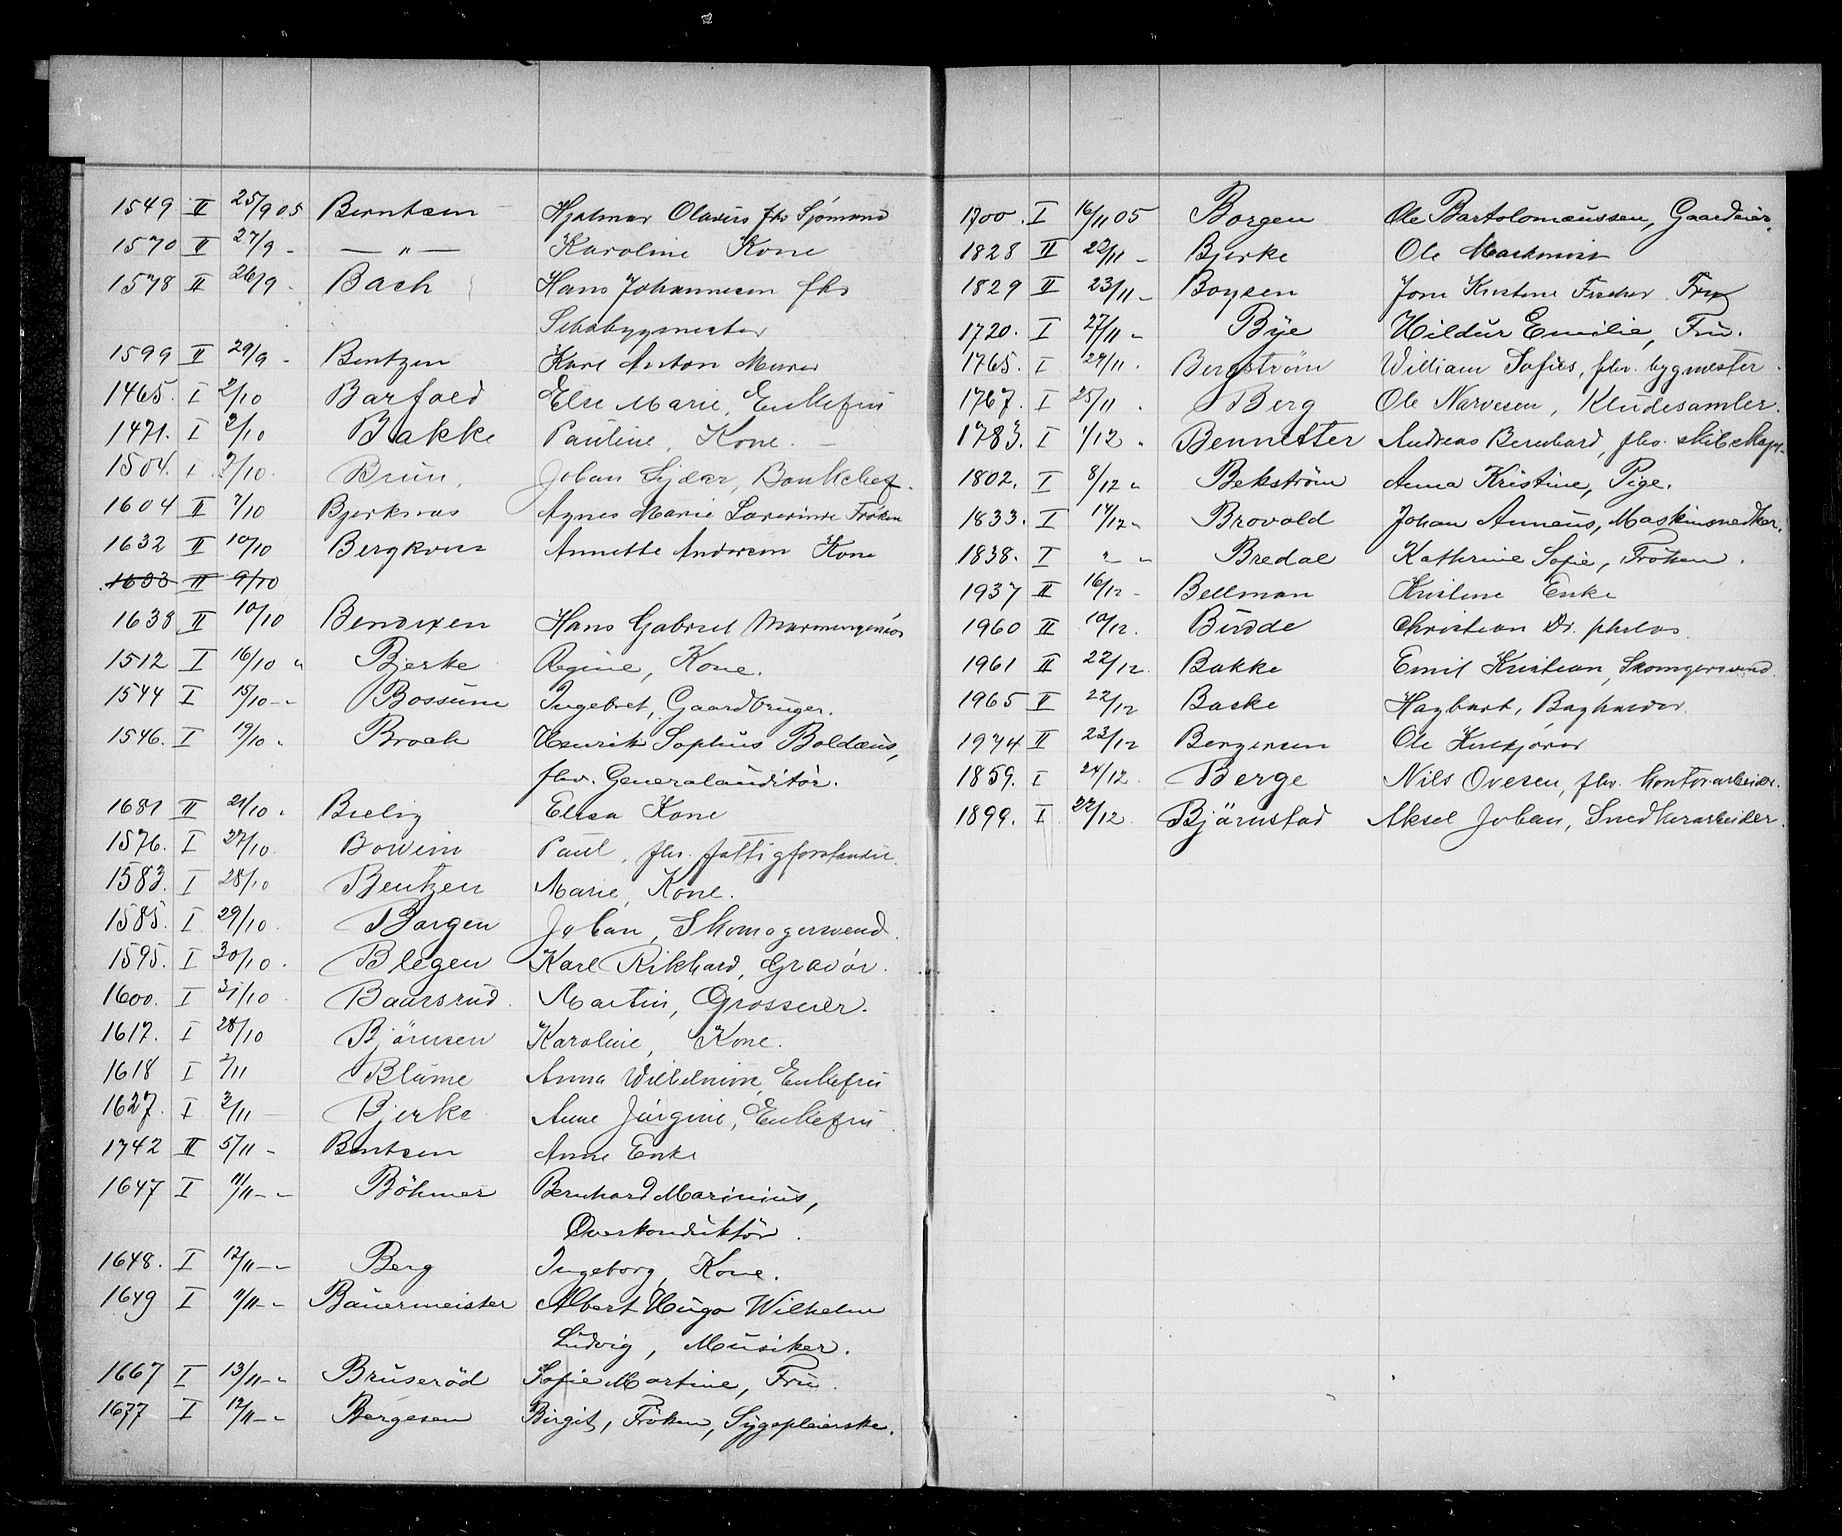 1549 II 25/9 05 Berntsen Hjalmar Olavus fhv Sjømand
1570 II 27/9 - — " — Karoline Kone
1578 II 26/9 - Bach Hans Johannesen fhv
Skibsbygmester
1599 II 29/9 - Bentzen Karl Anton Murer
1465. I 2/10 Barfoed Else Marie, Enkefru
1471. I 2/10 Bakke Pauline, Kone. —
1504. I 2/10 Brun, Johan, Bankchef.
1604 II 7/10 Bjerknæs Agnes Marie Severinne Frøken
1632 II 10/10 Bergkvist Annette Andersen Kone
1633 II 9/10
1638 II 10/10 Bendixen Hans Gabriel
1512 I 16/10 " Bjerke Regine, Kone.
1544 I 15/10 - " Bossum Ingebret, Gaardbruger.
1546. I 19/10 " Broch Henrik Sophus Boldæus,
fhv. Generalauditør.
1681 II 21/10 " Bielig Elisa Kone
1576. I 27/10. Bowim Paul, fhv. fattigforstander.
1583. I 28/10 Bentzen Marie, Kone.
1585. I 29/10. Borgen Johan, Skomagersvend.
1595. I 30/10. Blegen Karl Rikhard, Gravør.
1600. I 31/10 Baursrud. Martin, Grosserer.
1617. I 28/10 Bjørnsen Karoline, Kone.
1618 I 2/11 Blume Anna Wilhelmine, Enkefru
1627. I 3/11 — Bjerke Anne Jørgine, Enkefru
1742 II 5/11 - Berntsen Anne Enke
1647 I 11/11 - " Böhmer Bernhard Marinius,
Overkonduktør.
1648. I 12/11 - " Berg Ingeborg, Kone.
1649 I 11/11 - " Bauermeister Albert Hugo Wilhelm
Ludvig, Musiker.
1667 I 13/11 - " Bruserød Sofie Martine, Fru.
1677 I 12/11 - " Bergesen Birgit, Frøken, Sygepleierske.
1700. I 16/11 05 Borgen Ole Bartolomæussen, Gaardeier.
1828 II 22/11 - Bjerke Ole Maskinist
1829 II 23/11 - Boysen Kirstine Fischer Fru
1720. I 27/11 " Bye Hildur Emilie, Fru.
1765. I 29/11. Bergstrøm William Sofus, fhv. bygmester.
1767. I 25/11 . Berg Ole Narvesen, Kludesamler.
1783. I 1/12 " Bennetter Andreas Bernhard, fhv. skibskapt.
1802. I 8/12 " Bekstrøm Anna Kristine, Pige.
1833. I 14/12 " Brovold Johan Annæus, Maskinsnedker.
1838. I " " Bredal Kathrine Sofie, Frøken.
1937 II 16/12 - Bellman Kristine Enke
1960 II 19/12. Budde Christian Dr. philos.
1961 II 22/12. Bakke Emil Kristian, Skomagersvend.
1965 II 22/12 Baske Hagbart, Baghaver.
1974 II 23/12 Bergersen Ole Huseier
1859. I 24/12. Berge Nils Ovesen, fhv. kontorarbeider.
1899. I 22/12. Bjørnstad Aksel Johan, Snedkerarbeider.